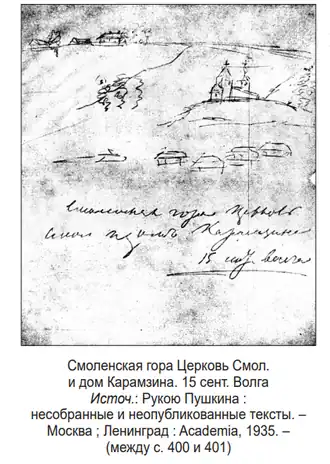 Смоленская гора Церковь
Смол и домъ Карамзина
15 сент. Волга
Смоленская гора Церковь Смол.
и дом Карамзина. 15 сент. Волга
Источ.: Рукою Пушкина :
несобранные и неопубликованные тексты. –
Москва ; Ленинград : Academia, 1935. –
(между с. 400 и 401)